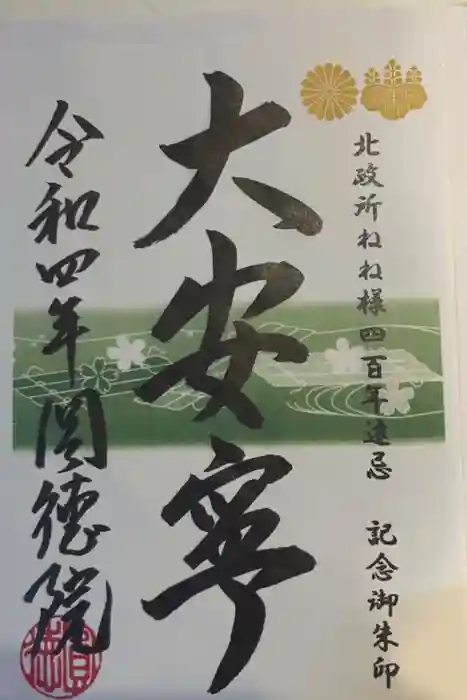 北政所ねね様四百年遠忌 記念御朱印
大安寧
令和四年 圓德院